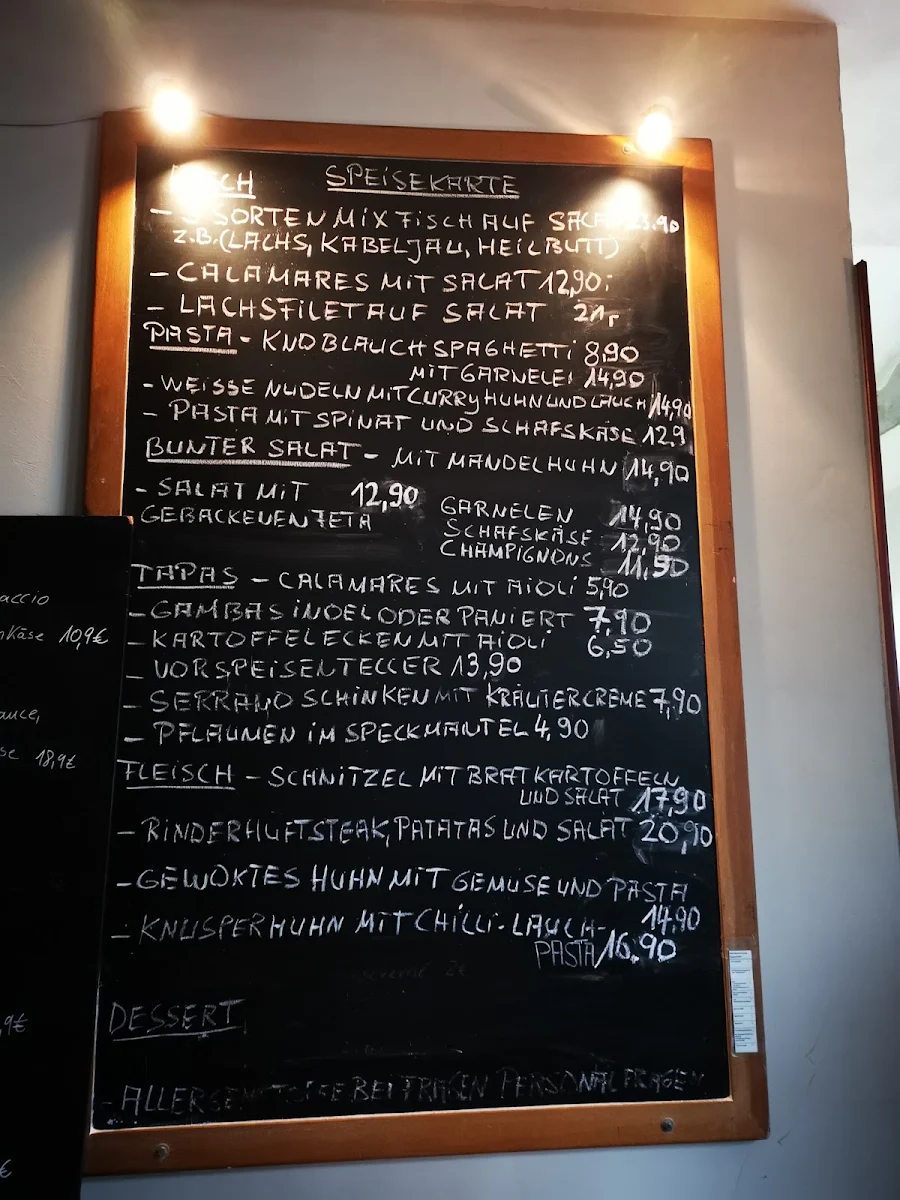 SPEISEKARTE
SORTEN MIX FISCH AUF
z.B. (LACHS, KABELJAU, HEILBUTT)
- CALAMARES MIT SALAT 12,90
- LACHSFILET AUF SALAT 21,-
PASTA - KNOBLAUCHSPAGHETTI 8,90
MIT GARNELEN 14,90
- WEISSE NUDELN MIT CURRYHUHN UND LAUCH 14,90
- PASTA MIT SPINAT UND SCHAFSKÄSE 12,9
BUNTER SALAT - MIT MANDELHUHN 14,90
- SALAT MIT 12,90
GEBACKENEN FETA
GARNELEN 14,90
SCHAFSKÄSE 12,90
CHAMPIGNONS 11,50
TAPAS - CALAMARES MIT AIOLI 5,90
- GAMBAS IN OEL ODER PANIERT 7,90
- KARTOFFELECKEN MIT AIOLI 6,50
- VORSPEISENTELLER 13,90
- SERRANO SCHINKEN MIT KRÄUTERCREME 7,90
- PFLAUMEN IM SPECKMANTEL 4,90
FLEISCH - SCHNITZEL MIT BRATKARTOFFELN
UND SALAT 17,90
- RINDERHÜFTSTEAK, PATATAS UND SALAT 20,90
- GEWOKTES HUHN MIT GEMÜSE UND PASTA
14,90
- KNUSPERHUHN MIT CHILLI-LAUCH-
PASTA 16,90
DESSERT
BEI FRAGEN PERSONAL FRAGEN
accio
10,9€
ance,
se 18,9€
,9€
€